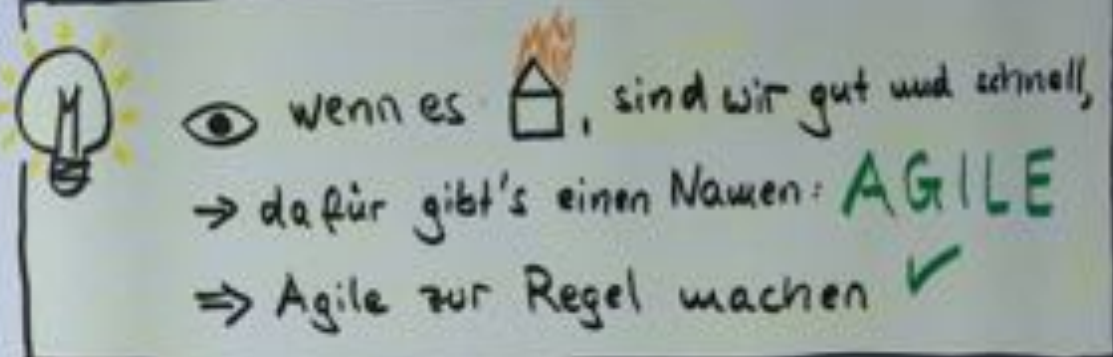 wenn es , sind wir gut und schnell,
→ dafür gibt's einen Namen: AGILE
⇒ Agile zur Regel machen ✓